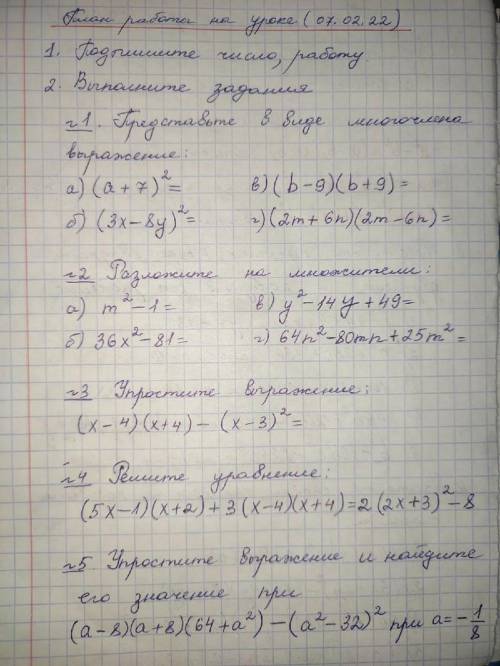 План работы на уроке (07.02.22)
1. Подпишите число, работу.
2. Выполните задания
№1. Представьте в виде многочлена
выражение:
а) (a+7)²= в) (b-9)(b+9)=
б) (3x-8y)²= г) (2m+6n)(2m-6n)=
№2 Разложите на множители:
а) m²-1= в) y²-14y+49=
б) 36x²-81= г) 64n²-80mn+25m²=
№3 Упростите выражение:
(x-4)(x+4)-(x-3)²=
№4 Решите уравнение:
(5x-1)(x+2)+3(x-4)(x+4)=2(2x+3)²-8
№5 Упростите выражение и найдите
его значение при
(a-8)(a+8)(64+a²)-(a²-32)² при a=-1/8